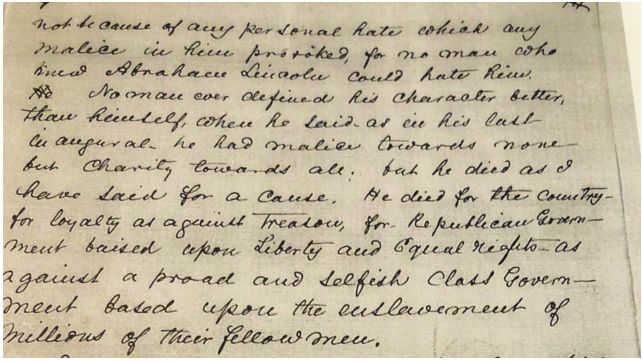 not because of any personal hate which any
malice in him provoked, for no man who
knew Abraham Lincoln could hate him.
No man ever defined his character better,
than himself, when he said - as in his last
inaugural - he had malice towards none
but Charity towards all. but he died as I
have said for a cause. He died for the country -
for loyalty as against Treason, for Republican Govern-
ment baised upon Liberty and Equal rights - as
against a proad and selfish Class Govern-
ment based upon the enslavement of
Millions of their fellow men.